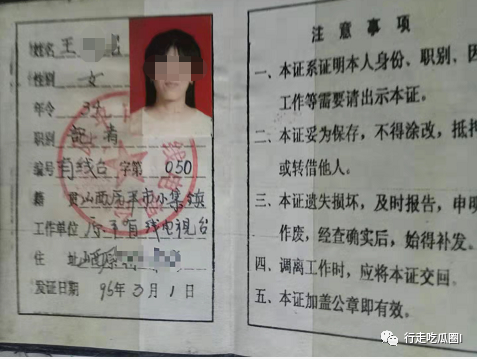 姓名 王
性别 女
年令 34
职别 记者
编号 有线台 字第 050
籍 贯 山西原平市
工作单位 原平有线电视台
住 址 山西原
发证日期 95年3月1日
注意事项
一、本证系证明本人身份、职别、因
工作等需要请出示本证。
二、本证妥为保存，不得涂改，抵押
或转借他人。
三、本证遗失损坏，及时报告，申明
作废，经查确实后，始得补发。
四、调离工作时，应将本证交回。
五、本证加盖公章即有效。
行走吃瓜圈I